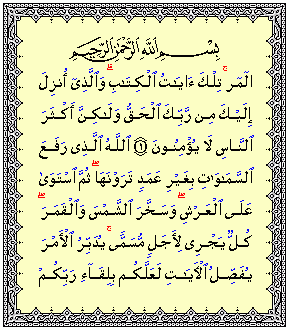 بِسْمِ ٱللَّهِ ٱلرَّحْمَٰنِ ٱلرَّحِيمِ
الٓمٓرۚ تِلْكَ ءَايَٰتُ ٱلْكِتَٰبِۗ وَٱلَّذِىٓ أُنزِلَ
إِلَيْكَ مِن رَّبِّكَ ٱلْحَقُّ وَلَٰكِنَّ أَكْثَرَ
ٱلنَّاسِ لَا يُؤْمِنُونَ ۝١ ٱللَّهُ ٱلَّذِى رَفَعَ
ٱلسَّمَٰوَٰتِ بِغَيْرِ عَمَدٍ تَرَوْنَهَاۖ ثُمَّ ٱسْتَوَىٰ
عَلَى ٱلْعَرْشِۖ وَسَخَّرَ ٱلشَّمْسَ وَٱلْقَمَرَۖ
كُلٌّ يَجْرِى لِأَجَلٍ مُّسَمًّىۚ يُدَبِّرُ ٱلْأَمْرَ
يُفَصِّلُ ٱلْءَايَٰتِ لَعَلَّكُم بِلِقَآءِ رَبِّكُمْ